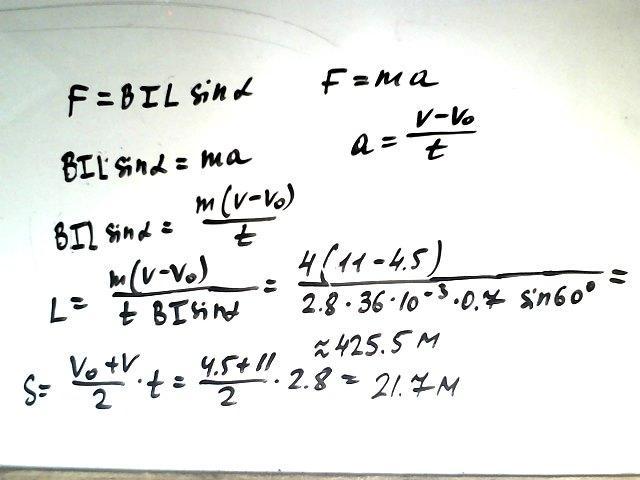 F = BIL sinα    F = ma
BIL sinα = ma    a = (v-v₀)/t
BIL sinα = m(v-v₀)/t
L = m(v-v₀)/(t BI sinα) = 4(11-4.5)/(2.8·36·10⁻³·0.7 sin60⁰) =
≈425.5 м
S = (v₀+v)/2 · t = (4.5+11)/2 · 2.8 = 21.7 м